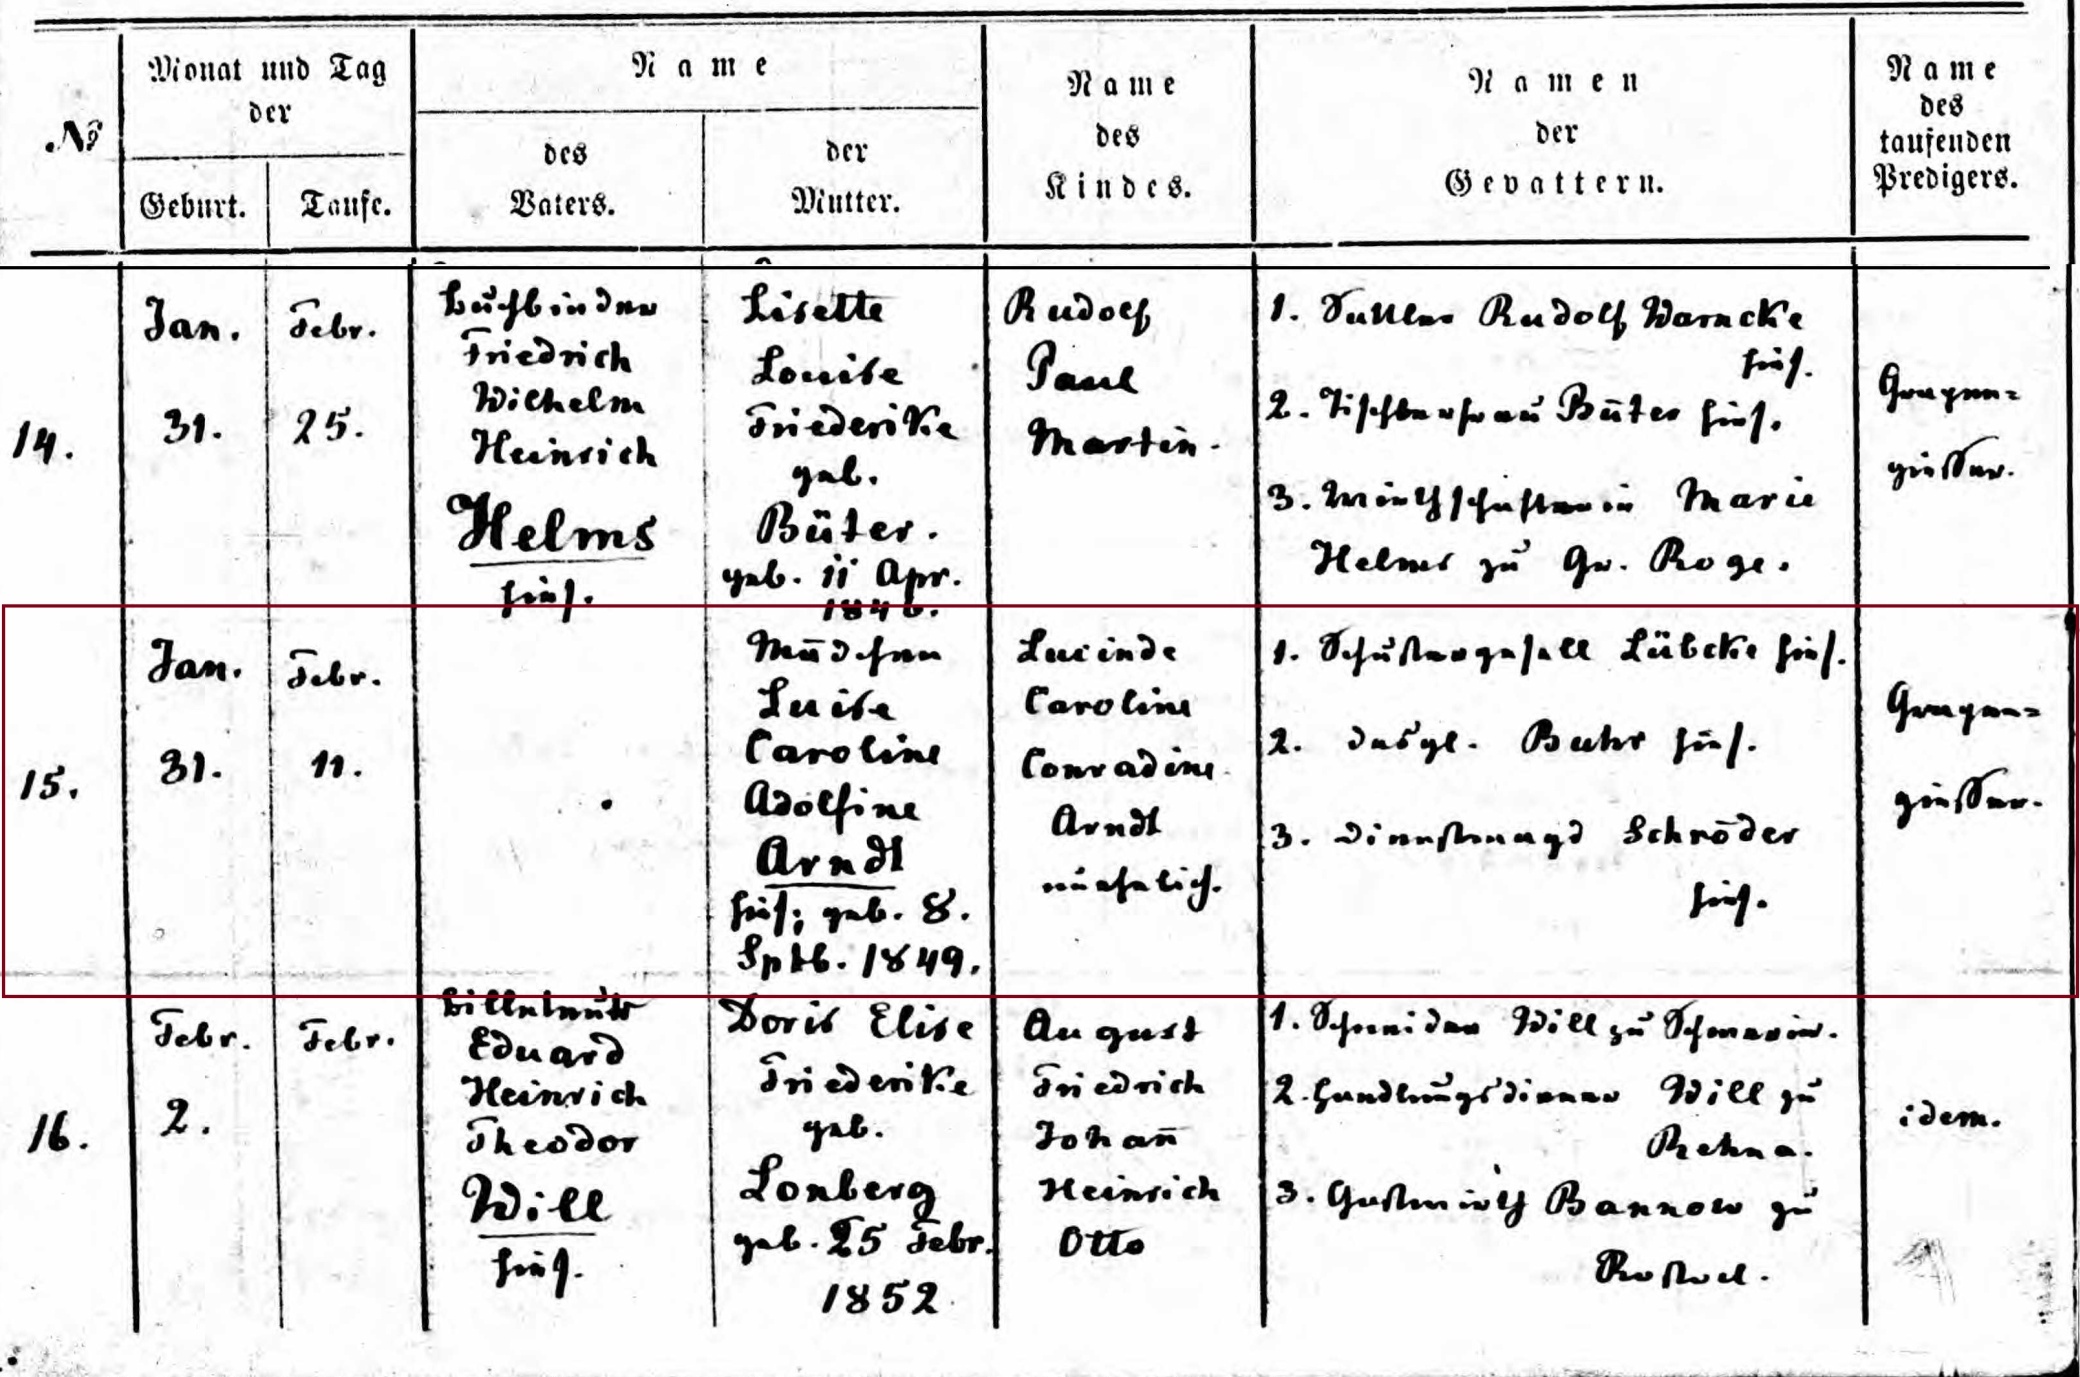 №
Monat und Tag
der
Geburt.
Taufe.
Name
des
Vaters.
der
Mutter.
Name
des
Kindes.
Namen
der
Gevattern.
Name
des
taufenden
Predigers.
14.
Jan.
31.
Febr.
25.
Buchbinder
Friedrich
Wilhelm
Heinrich
Helms
hies.
Lisette
Louise
Friederike
geb.
Büter.
geb. 11 Apr.
1846.
Rudolf
Paul
Martin.
1. Sattler Rudolf Warncke
hies.
2. Tischlerfrau Büter hies.
3. Wirthschafterin Marie
Helms zu Gr. Roge.
Grapen=
gießer.
15.
Jan.
31.
Febr.
11.
Mädchen
Luise
Caroline
Adolfine
Arndt
hies; geb. 8.
Sptb. 1849.
Lucinde
Caroline
Conradine
Arndt
unehelich.
1. Schustergesell Lübcke hies.
2. desgl. Buhr hies.
3. Dienstmagd Schröder
hies.
Grapen=
gießer.
16.
Febr.
2.
Febr.
Eduard
Heinrich
Theodor
Will
hies.
Doris Elise
Friederike
geb.
Lonberg
geb. 25 Febr.
1852
August
Friedrich
Johan̄
Heinrich
Otto
1. Schneider Will zu Schwerin.
2. Handlungsdiener Will zu
Rehna.
3. Gastwirth Bannow zu
Rostock.
idem.